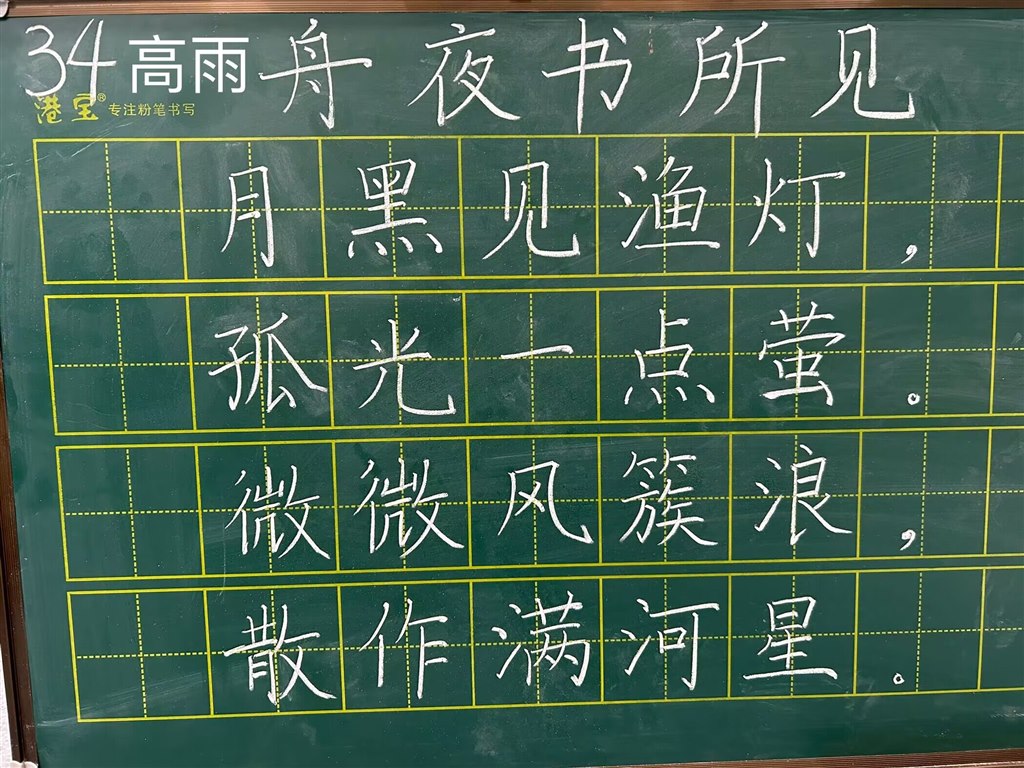 34 高雨 舟夜书所见
港宝® 专注粉笔书写
月黑见渔灯，
孤光一点萤。
微微风簇浪，
散作满河星。